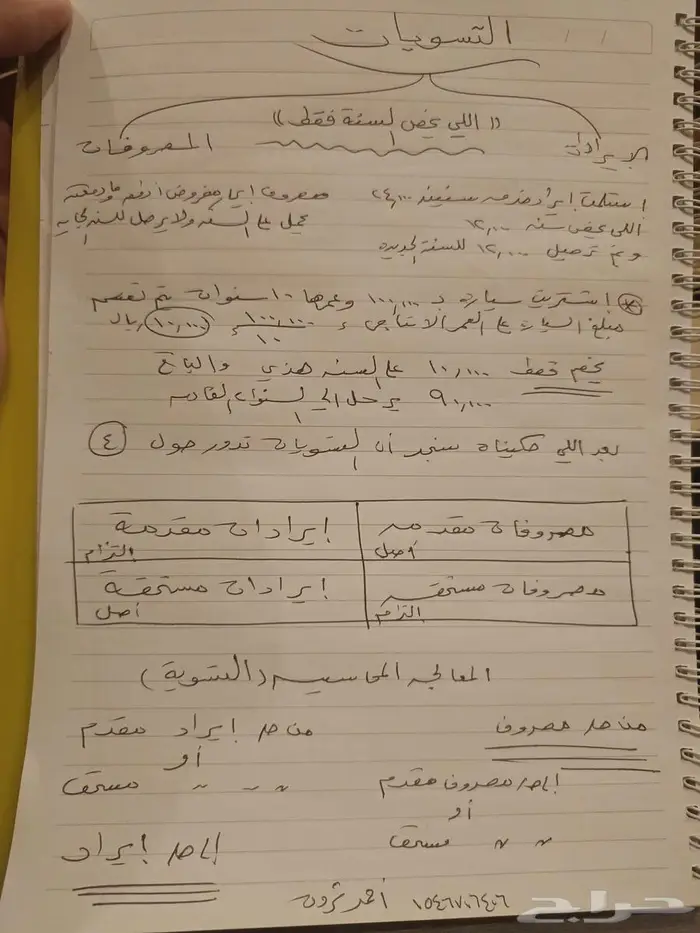 التسويات
(( اللي يخص السنة فقط ))
الإيرادات
المصروفات
استلمت إيراد خدمه سنتين ٢٤,٠٠٠
اللي يخص سنه ١٢,٠٠٠
وتم ترحيل ١٢,٠٠٠ للسنة الجديده
مصروف إيجار مفروض ادفعه وما دفعته
يحمل على السنه ولا يرحل للسنه الجايه
* اشتريت سياره بـ ١٠٠,٠٠٠ وعمرها ١٠ سنوات يتم تقسيم
مبلغ السيارة على العمر الانتاجي = ١٠٠,٠٠٠ / ١٠ = ١٠,٠٠٠ ريال
يخصم فقط ١٠,٠٠٠ على السنه هذي والباقي
٩٠,٠٠٠ يرحل الى السنوات القادمه
بعد اللي حكيناه سنجد أن التسويات تدور حول ٤
مصروفات مقدمه
أصل
إيرادات مقدمة
التزام
مصروفات مستحقه
التزام
إيرادات مستحقة
أصل
المعالجه المحاسبيه (التسوية)
من حـ/ مصروف
إلى حـ/ مصروف مقدم
أو
〃 〃 مستحق
من حـ/ إيراد مقدم
أو
〃 〃 مستحق
إلى حـ/ إيراد
أحمد ثروت
حراج